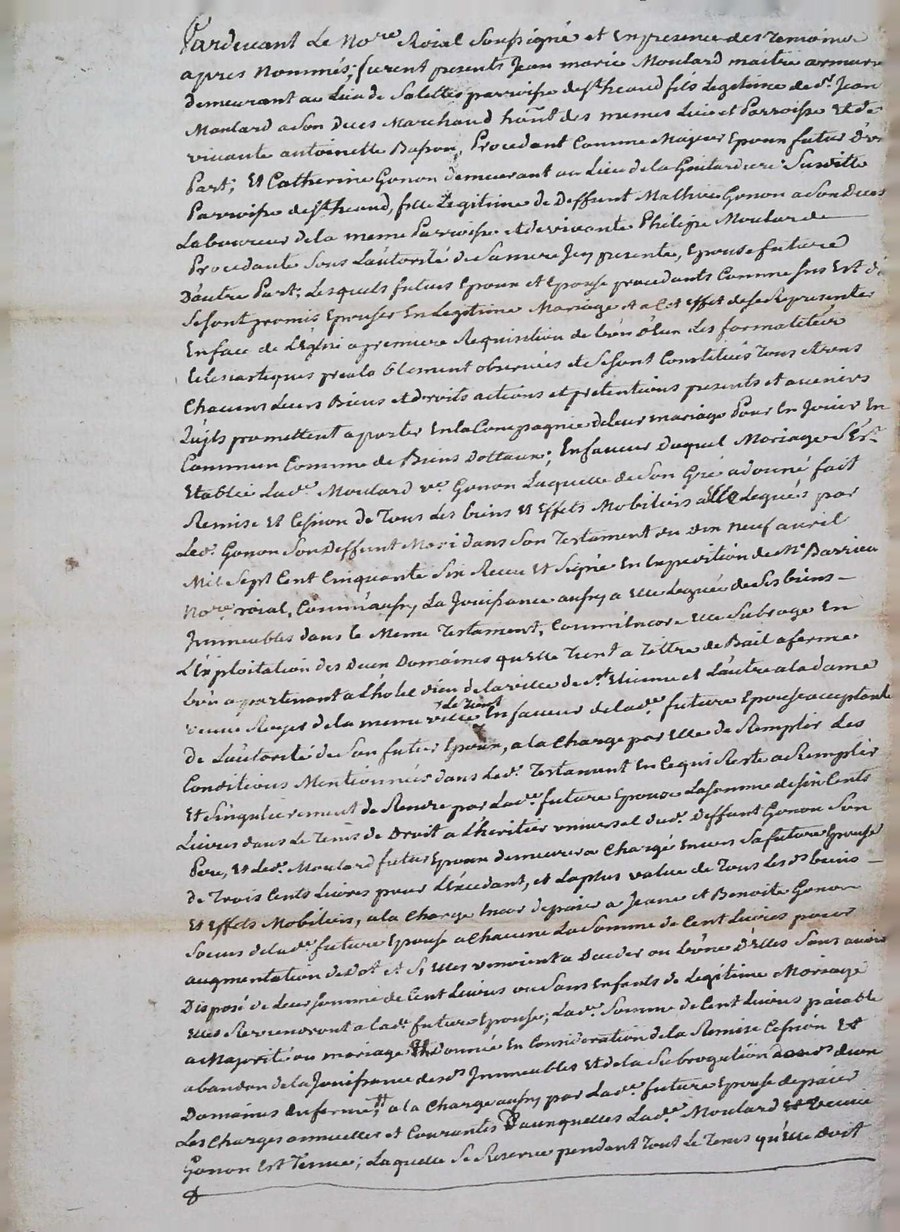 Pardevant Le No.re Roial Soussigné et En presence des temoins
apres Nommés; furent presents Jean marie Moulard maitre armurier
demeurant au Lieu de Salettes parroisse de St. heand fils Legitime de Sr. Jean
Moulard a Son Deces Marchand des memes Lieu et Parroisse Et de
vivante antoinette Procedant Comme Majeur Epoux futur d'une
Part; Et Catherine Gonon demeurant au Lieu de la Susditte
Parroisse de St. heand, fille Legitime de Deffunt Mathieu Gonon a Son Deces
Laboureur de la meme Parroisse et de vivante Philippe Moularde
Procedante Sous L'autorité de Sa mere Icy presente, Epouse future
D'autre Part; Lesquels futurs Epoux et Epouse procedants Comme Sus Est dit
Se Sont promis Epouser En Legitime Mariage et a Cet Effet de se Representer
En face de L'Eglise a premiere Requisition de L'un d'Eux Les formalités
Eclesiastiques preala blement observées et Se Sont Constitués Tous et uns
Chacuns Leurs Biens et Droits actions et pretentions presents et avenirs
qu'ils promettent aporter En la Compagnie de Leur mariage Pour En Jouir En
Commun Comme de Biens Dottaux; En faveur Duquel Mariage S'Est
Etablie Lad.e Moulard v.e Gonon Laquelle de Son Gré a donné fait
Remise Et Cession de Tous Les biens Et Effets Mobiliers a Elle Legués par
Led. Gonon Son Deffunt Mari dans Son Testament du dix neuf avril
Mil Sept Cent Cinquante Six Receu Et Signé En Expedition de Me. Barrieu
No.re roial, Comm'aussy La Jouissance aussy a elle Leguée de Ses biens –
Immeubles dans le Meme Testament, Comm'Encore Elle Subroge En
L'Exploitation des Deux Domaines qu'elle Tient a Tittre de Bail a ferme
L'un apartenant a L'hotel dieu de la ville de St. Etienne et L'autre a la dame
veuve de la meme ville En faveur de lad.e future Epouse acceptante
de L'autorité de Son futur Epoux, a la Charge par Elle de Remplir Les
Conditions Mentionnées dans Led. Testament En Ce qui Reste a Remplir
Et Singulierement de Rendre par Lad.e future Epouse La Somme de Six Cents
Livres dans Le Tems de Droit a L'heritier universel dud. Deffunt Gonon Son
Pere, Et Led. Moulard futur Epoux demeurera Chargé Envers Sa future Epouse
de Trois Cents Livres pour L'Excedant, et La plus value de Tous Les ds. biens –
Et Effets Mobiliers, a la Charge Encor de paier a Jeane et Benoite Gonon
Soeurs de lad.e future Epouse a Chacune La Somme de Cent Livres pour
augmentation de dot et Si Elles venoient a Deceder ou L'une d'Elles Sans avoir
Disposé de Leur Somme de Cent Livres ou Sans Enfants de Legitime Mariage
Elles Reviendront a lad.e future Epouse; Lad.e Somme de Cent Livres païable
a Majorité ou mariage donnée En Consideration de la Remise Cession Et
abandon de la Jouissance des ds. Immeubles Et de la Subrogation deux
Domaines En ferme, a la Charge aussy par Lad.e future Epouse de paier
Les Charges annuelles et Courantes auxquelles Lad.e Moulard veuve
Gonon Est Tenue; Laquelle Se Reserve pendant Tout Le Tems qu'Elle Doit